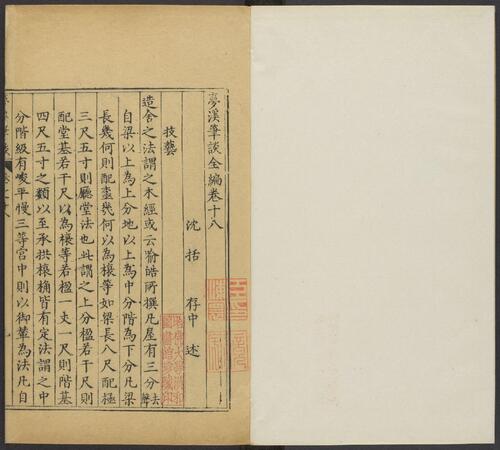 夢溪筆談全編卷十八
沈括 存中 述
技藝
造舍之法謂之木經或云喻皓所撰凡屋有三分去聲
自梁以上為上分地以上為中分階為下分凡梁
長幾何則配極幾何以為榱等如梁長八尺配極
三尺五寸則廳堂法也此謂之上分楹若干尺則
配堂基若干尺以為榱等若楹一丈一尺則階基
四尺五寸之類以至承拱榱桷皆有定法謂之中
分階級有峻平慢三等宮中則以御輦為法凡自